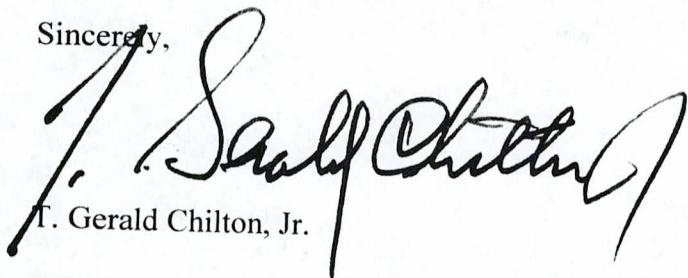 Sincerely,
T. Gerald Chilton J
T. Gerald Chilton, Jr.